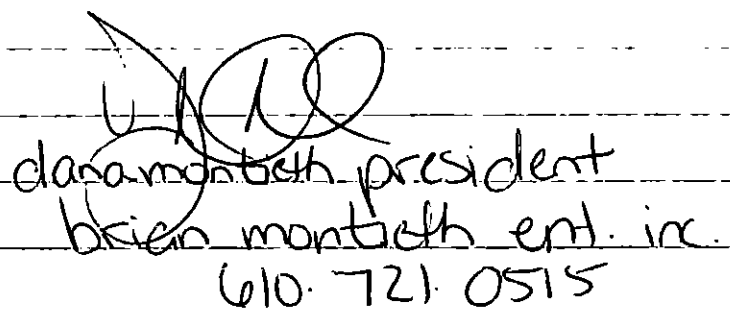 dana montieth president
brian montieth ent. inc.
610. 721. 0515